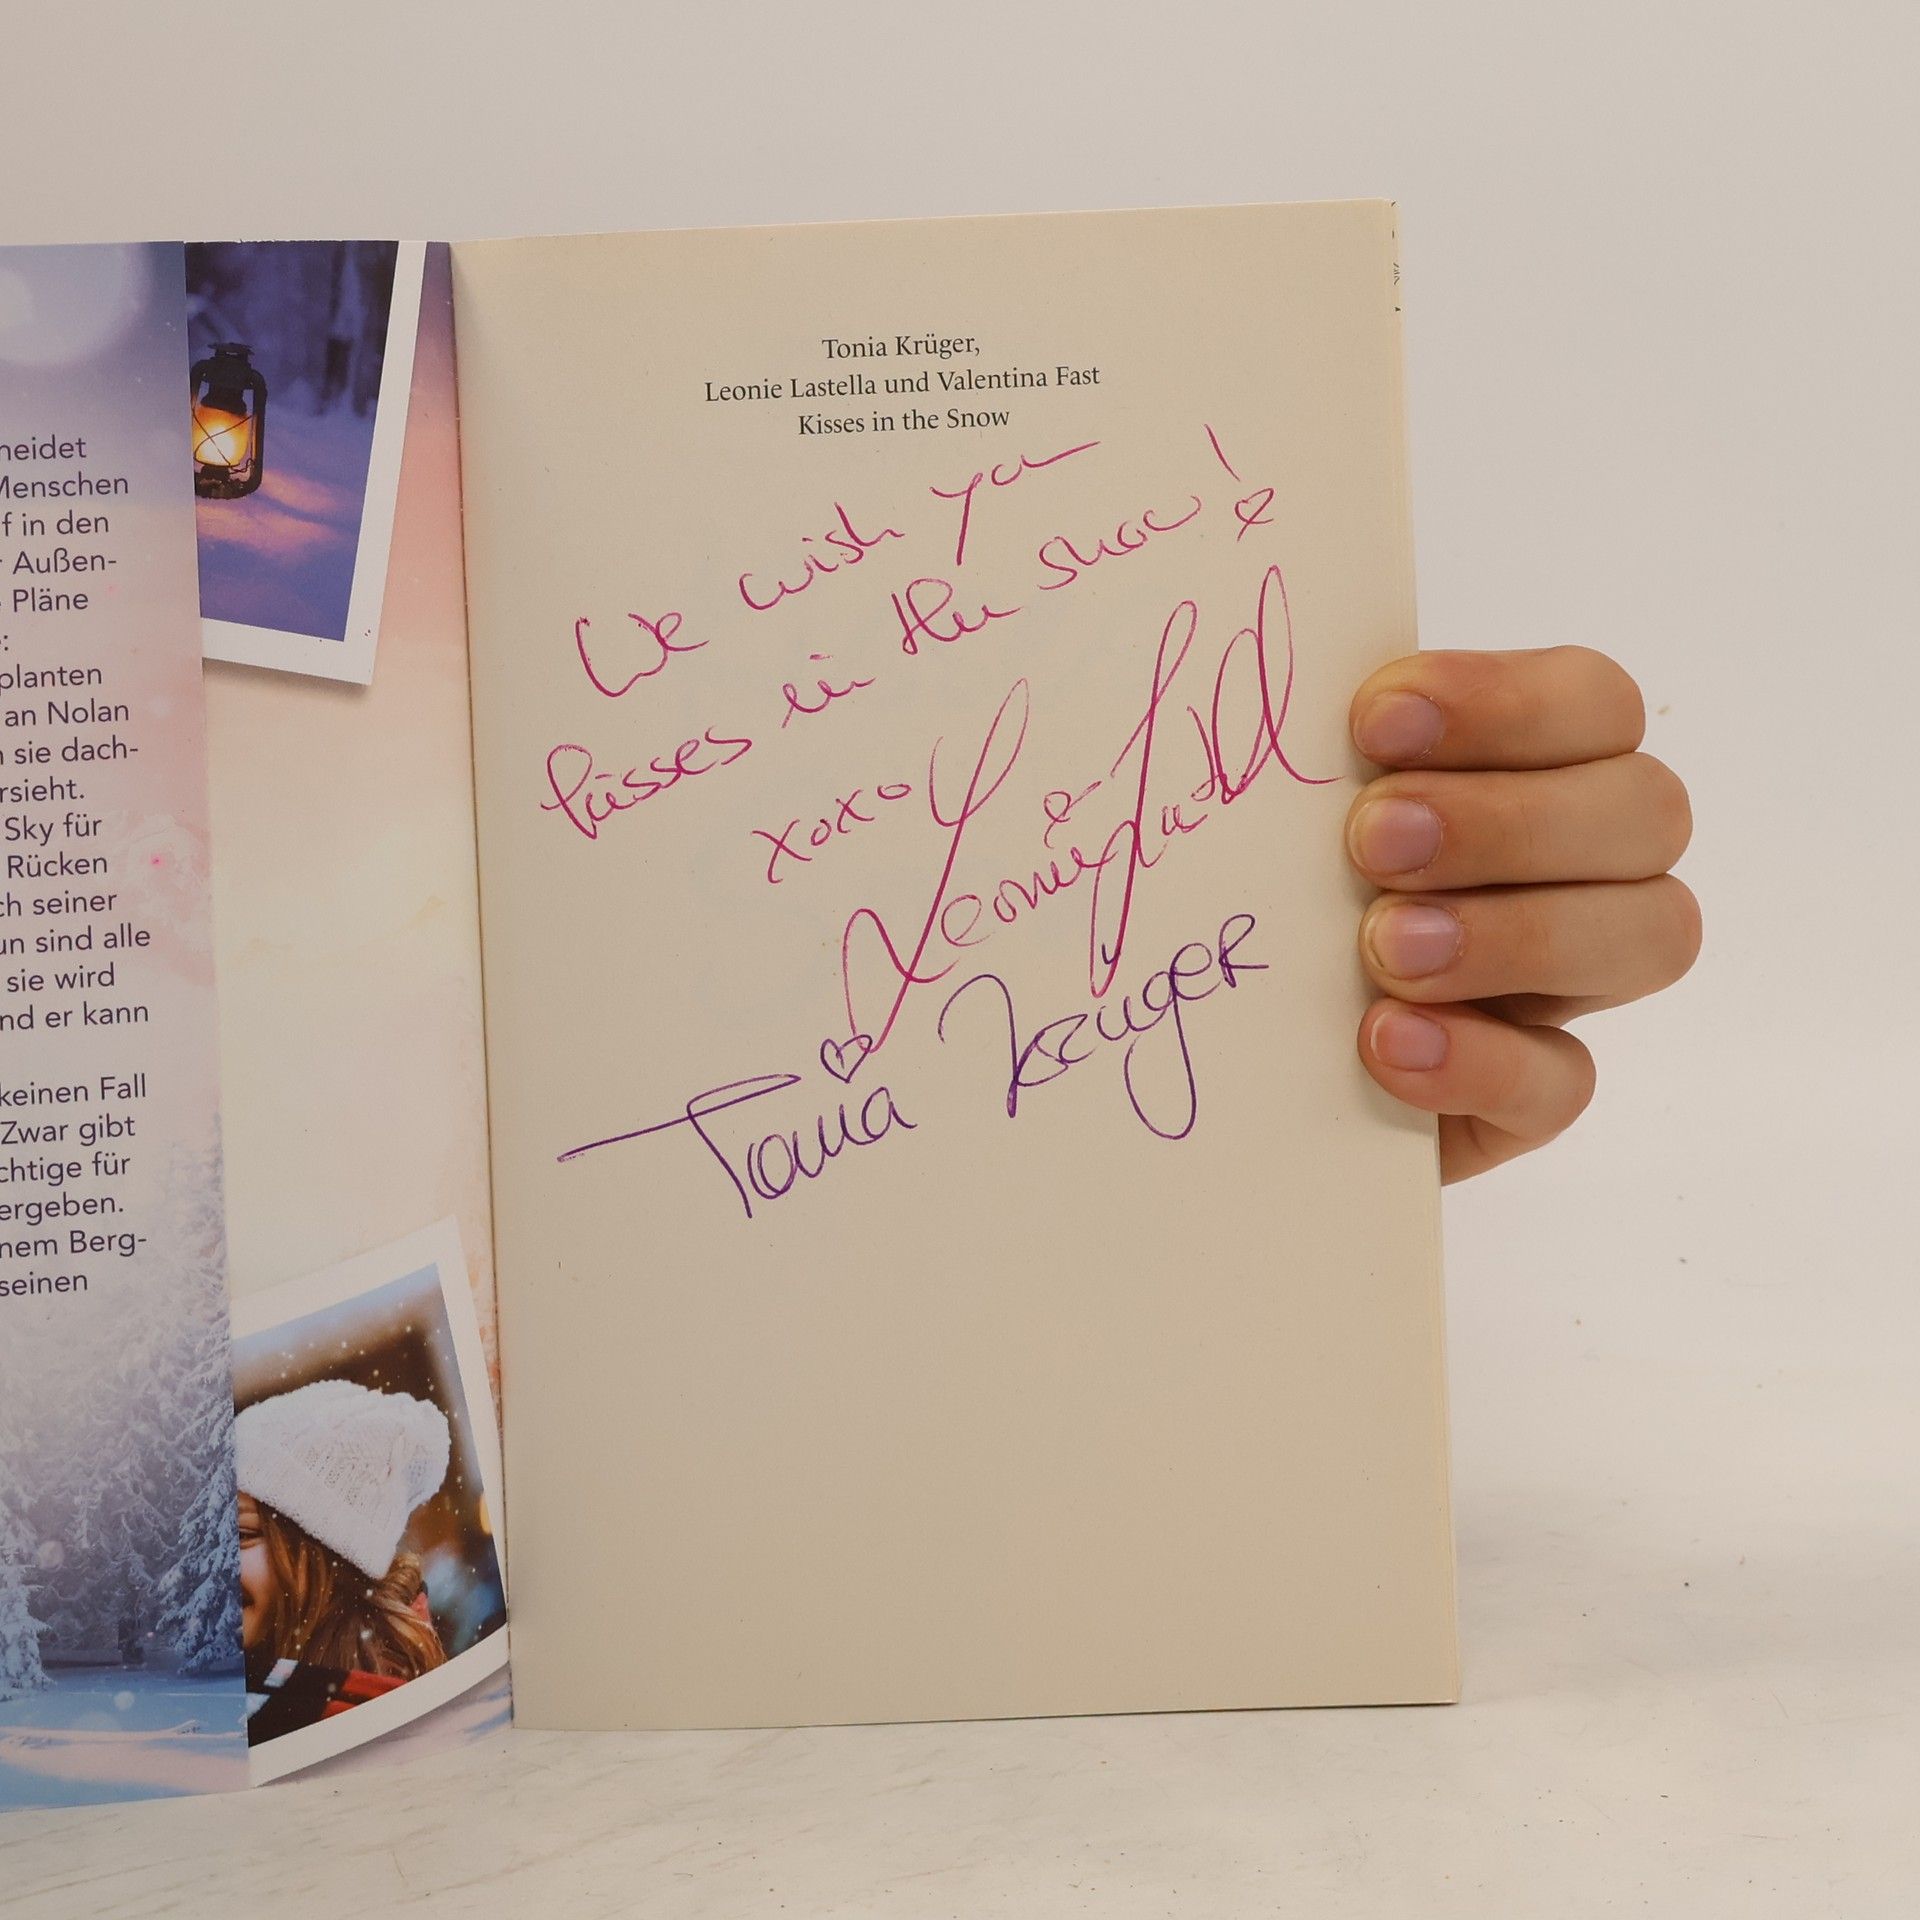 heidet
Menschen
f in den
r Außen-
e Pläne
e:
planten
an Nolan
n sie dach-
rsieht.
Sky für
Rücken
ch seiner
un sind alle
sie wird
nd er kann
keinen Fall
Zwar gibt
chtige für
ergeben.
nem Berg-
seinen
Tonia Krüger,
Leonie Lastella und Valentina Fast
Kisses in the Snow
We wish you
kisses in the snow!
xoxo
Leonie Lastella
Tonia Krüger